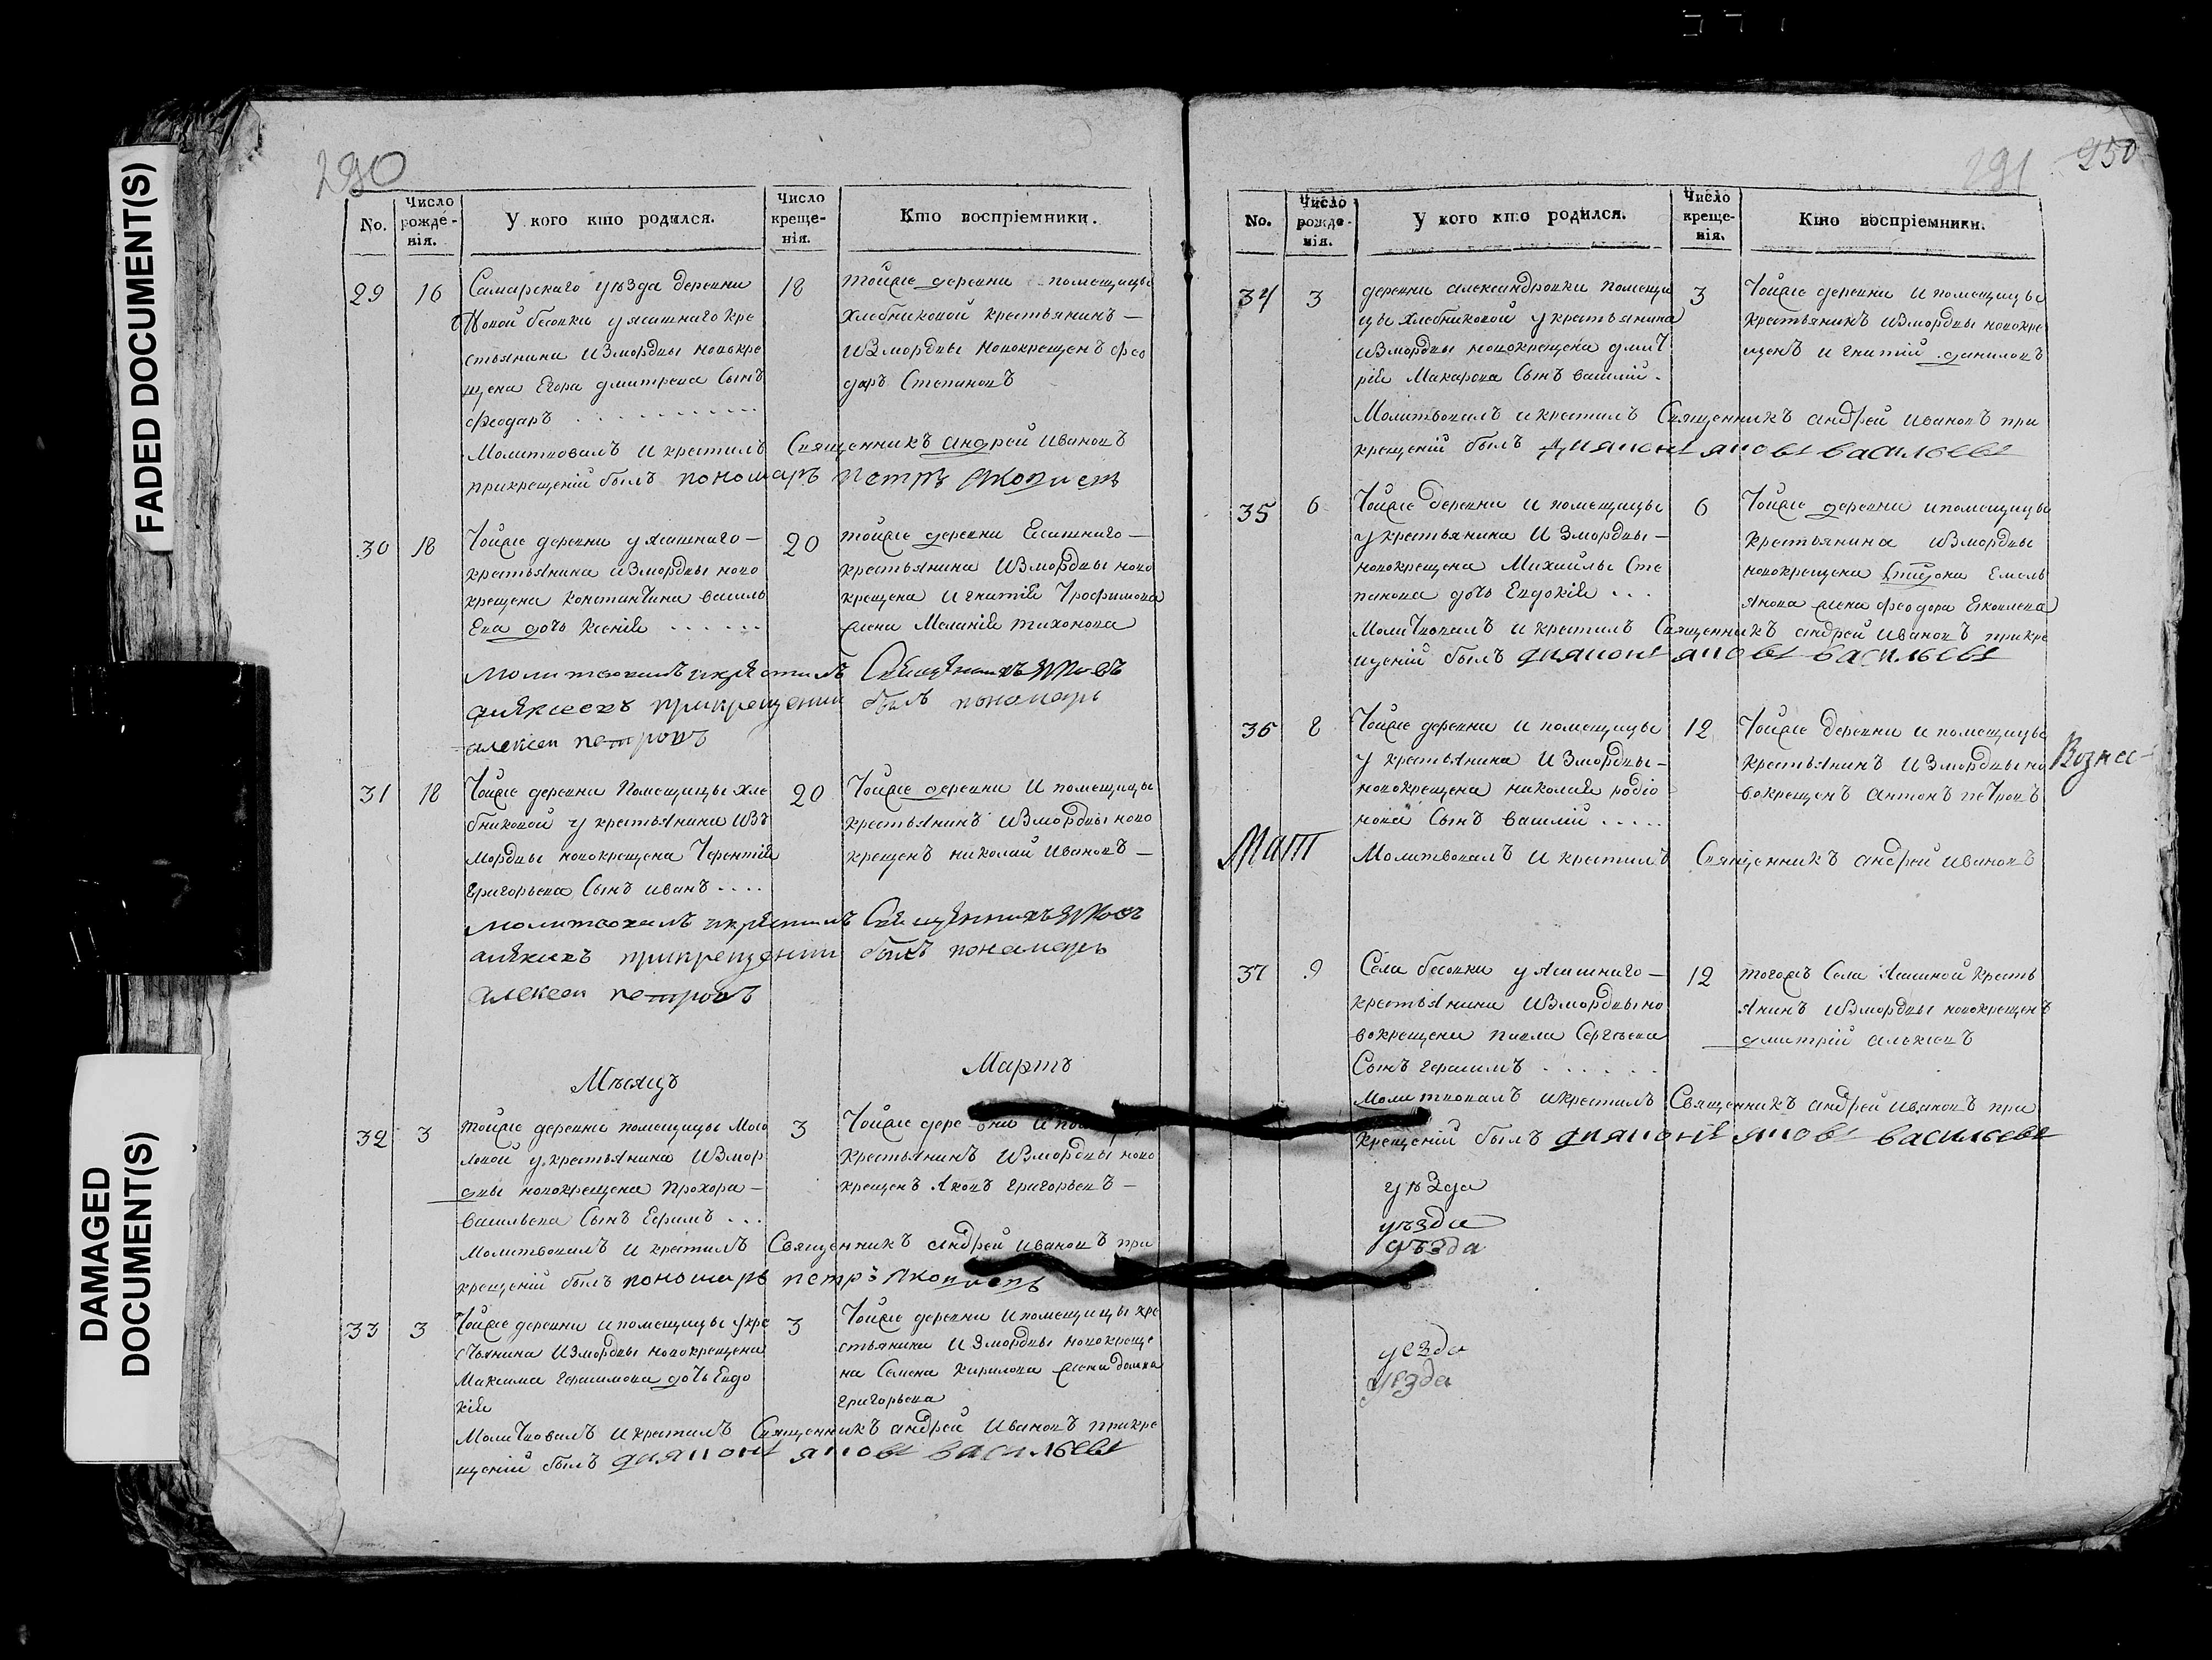 FADED DOCUMENT(S)
DAMAGED
DOCUMENT(S)
290
No.
Число
рожде-
нія.
У кого кто родился.
Число
креще-
нія.
Кто воспріемники.
29
16
Самарскаго уѣзда деревни
Новой бесовки у ясашнаго кре
стьянина изъ мордвы новокре
щена Егора дмитрева Сынъ
феодаръ
18
тойже деревни помещицы
Хлебниковой крестьянинъ
изъ мордвы новокрещенъ фео
даръ Степановъ
Молитвовалъ и крестилъ Священникъ андрей Ивановъ
прикрещеніи былъ пономаръ петръ
30
18
Тойже деревни у ясашнаго
крестьянина изъ мордвы ново
крещена константина василь
Ева дочь Ксенія
20
тойже деревни Есашнаго
крестьянина изъ мордвы ново
крещена игнатія Трофимова
жена Меланія тихонова
молитвовалъ и крестилъ
прикрещении былъ пономарь
алексеи петровъ
31
18
Тойже деревни Помещицы хле
бниковой у крестьянина изъ
мордвы новокрещена Терентія
григорьева Сынъ иванъ
20
Тойже деревни И помещицы
крестьянинъ изъ мордвы ново
крещенъ николай Ивановъ
молитвовалъ и крестилъ
прикрещении былъ пономарь
алексеи петровъ
Мѣсяцъ
Мартъ
32
3
тойже деревни помещицы
у крестьянина изъ мор
двы новокрещена Прохора
васильева Сынъ Ефимъ
3
Тойже деревни и
крестьянинъ изъ мордвы ново
крещенъ Яковъ григорьевъ
Молитвовалъ и крестилъ Священникъ андрей ивановъ при
крещеніи былъ пономарь петръ
33
3
Тойже деревни и помещицы у кре
стьянина изъ мордвы новокрещена
Максима герасимова дочь Евдо
кія
3
Тойже деревни и помещицы кре
стьянина изъ мордвы новокреще
на Семена Кирилова жена домна
григорьева
Молитвовалъ и крестилъ Священникъ андрей Ивановъ прикре
щеніи былъ васильевъ
291
250
No.
Число
рожде-
нія.
У кого кто родился.
Число
креще-
нія.
Кто воспріемники.
34
3
деревни александровки помещи
цы хлебниковой у крестьянина
изъ мордвы новокрещена дмит
рія Макарова Сынъ василій
3
Тойже деревни и помещицы
крестьянинъ изъ мордвы новокре
щенъ игнатій даниловъ
Молитвовалъ и крестилъ Священникъ андрей ивановъ при
крещеніи былъ васильевъ
35
6
Тойже деревни и помещицы
у крестьянина изъ мордвы
новокрещена Михаилы Сте
панова дочь Евдокія
6
Тойже деревни и помещицы
крестьянина изъ мордвы
новокрещена Емель
янова жена феодора
Молитвовалъ и крестилъ Священникъ андрей Ивановъ прикре
щеніи былъ васильевъ
36
8
Тойже деревни и помещицы
у крестьянина изъ мордвы
новокрещена николая родіо
нова Сынъ василій
12
Тойже деревни и помещицы
крестьянинъ изъ мордвы но
вокрещенъ антонъ петровъ
Молитвовалъ и крестилъ Священникъ андрей Ивановъ
37
9
Села бесовки у ясашнаго
крестьянина изъ мордвы но
вокрещена павла Сергѣева
Сынъ герасимъ
12
тогожъ Села Ясашной кресть
янинъ изъ мордвы новокрещенъ
дмитрій
Молитвовалъ и крестилъ Священникъ андрей Ивановъ при
крещеніи былъ васильевъ
уѣзда
уѣзда
уѣзда
уезда
уезда